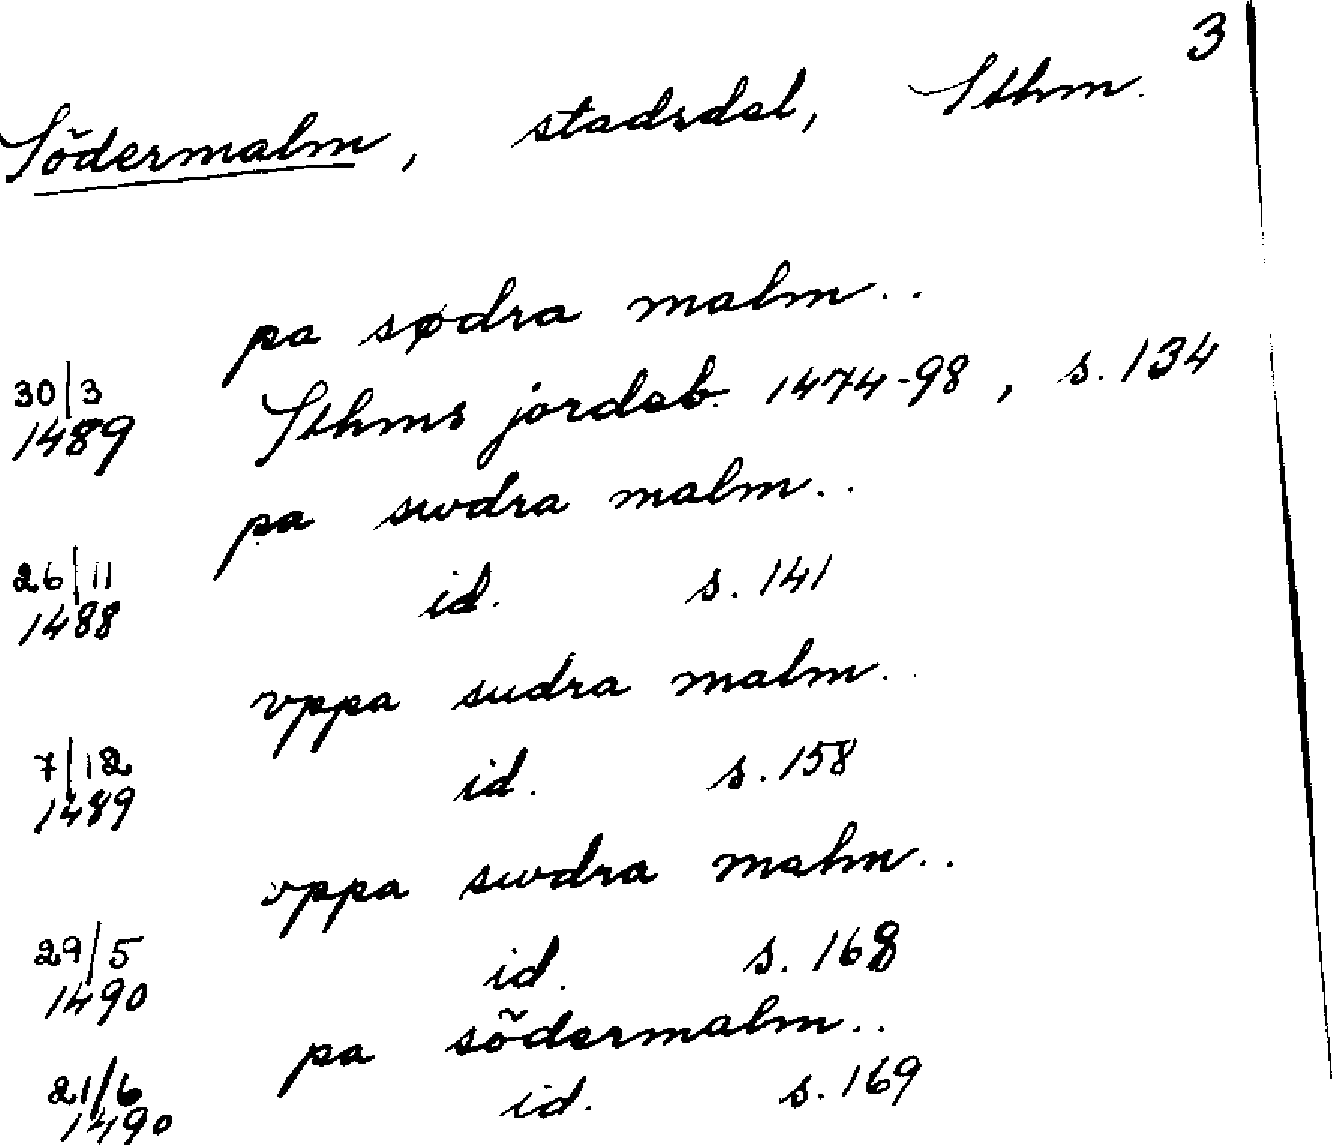 3
Södermalm, stadsdel, Sthm.
pa sødra malm..
30/3 1489 Sthms jordeb. 1474-98, s. 134
pa swdra malm..
26/11 1488 id. s. 141
vppa sudra malm..
7/12 1489 id. s. 158
vppa swdra malm..
29/5 1490 id. s. 168
pa södermalm..
21/6 1490 id. s. 169